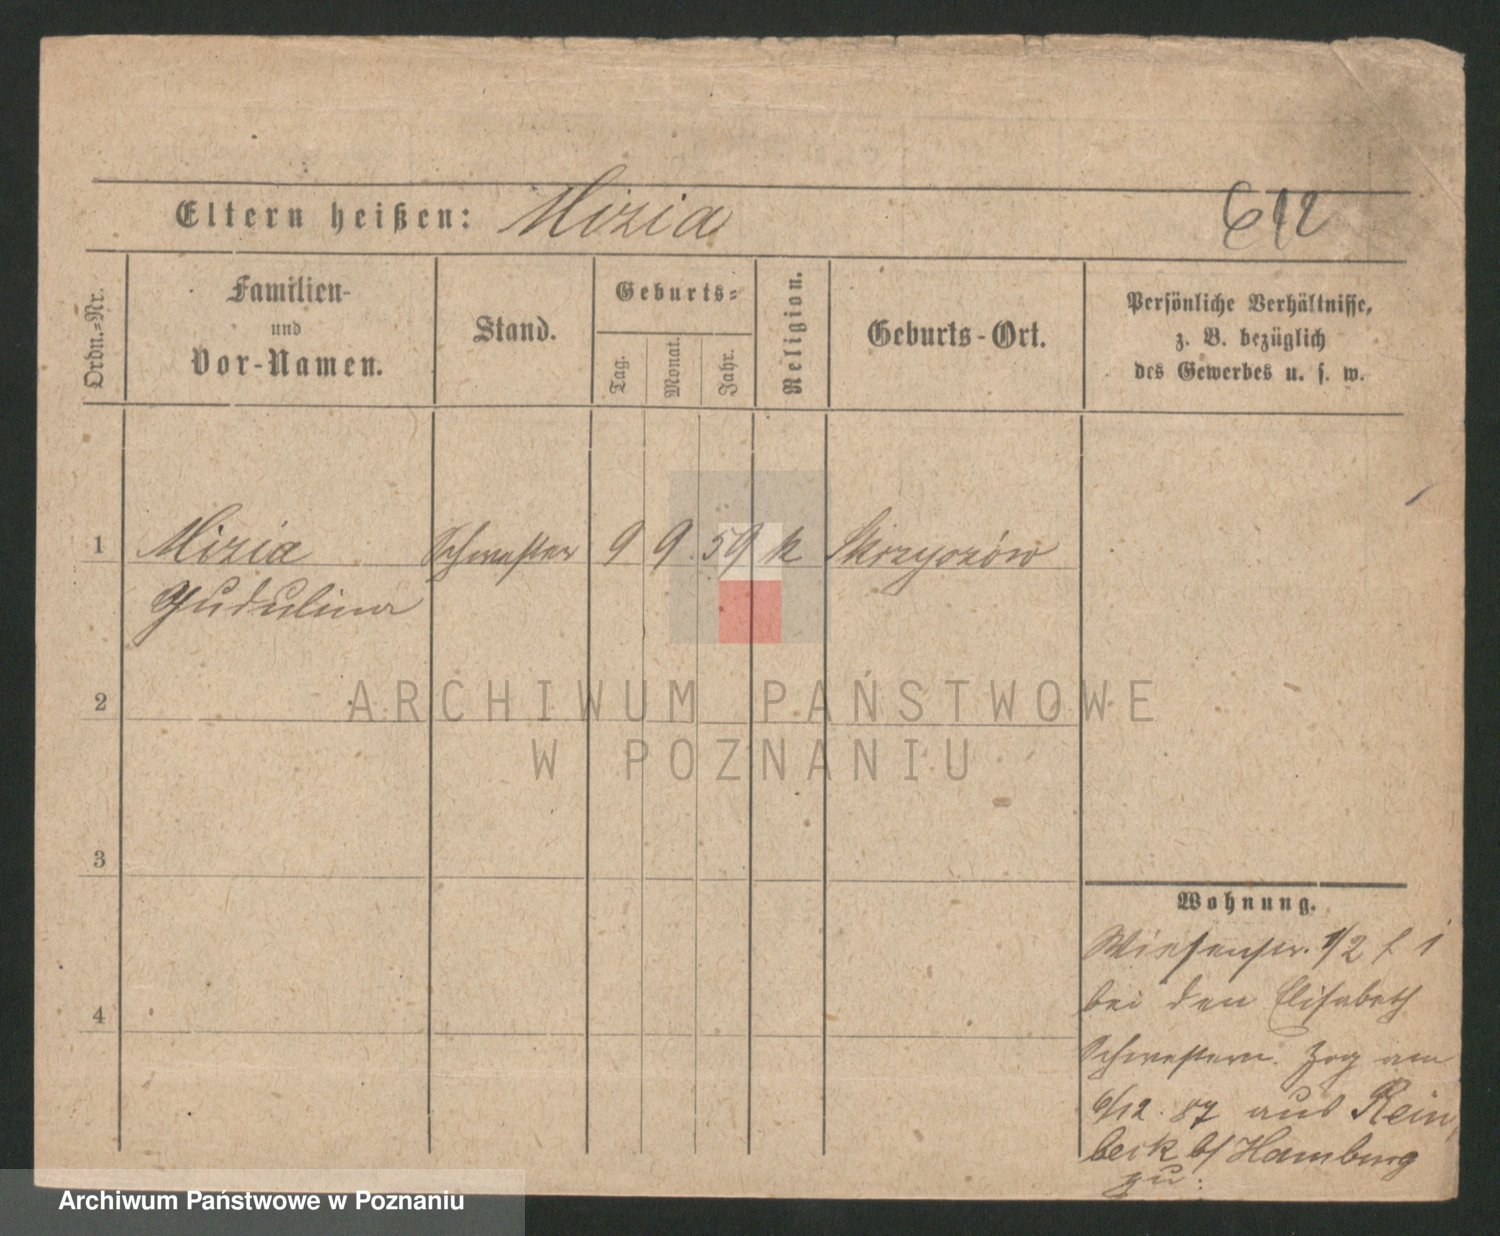 Eltern heißen: Mizia
612
Ordn.-Nr.
Familien-
und
Vor-Namen.
Stand.
Geburts-
Tag.
Monat.
Jahr.
Religion.
Geburts-Ort.
Persönliche Verhältnisse,
z. B. bezüglich
des Gewerbes u. s. w.
1 Mizia Schwester 9 9. 59 k
Gudulina
ARCHIWUM PAŃSTWOWE
W POZNANIU
2
3
4
Wohnung.
Wiesenstr. 1/2
bei den Elisabeth
Schwestern. Zog am
6/12. 87 aus Rein
beck b/ Hamburg
zu.
Archiwum Państwowe w Poznaniu